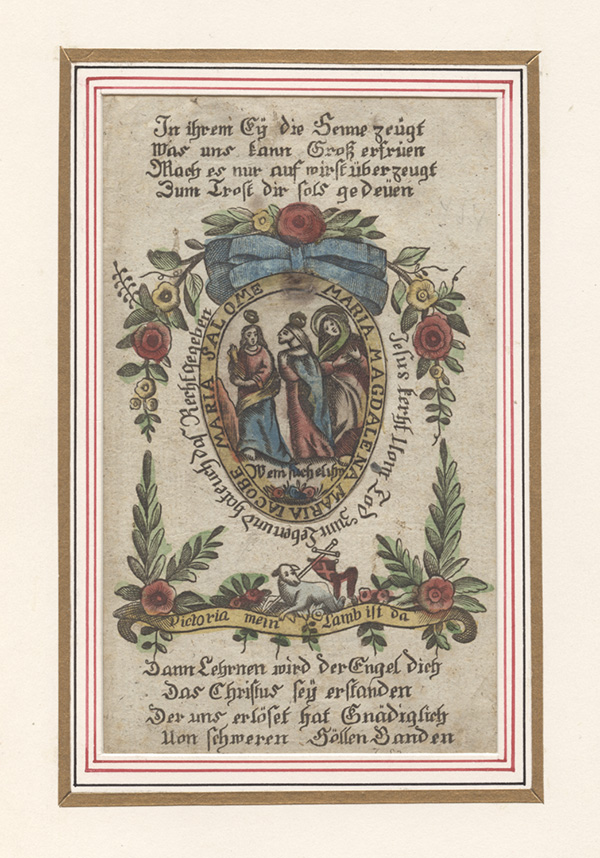 In ihrem Eÿ die Senne zeügt
Was uns kann Groß erfrüen
Mach es nur auf wirst überzeugt
Zum Trost dir sols gedeüen
MARIA SALOME MARIA MAGDALENA MARIA IACOBE
Jesus kerht vom Tod zum Leben und hat euch das Recht gegeben
Wem suchet ihr
Victoria mein Lamb ist da
Dann Lehrnen wird der Engel dich
Das Christus seÿ erstanden
Der uns erlöset hat Gnädiglich
Von schweren Höllen Banden